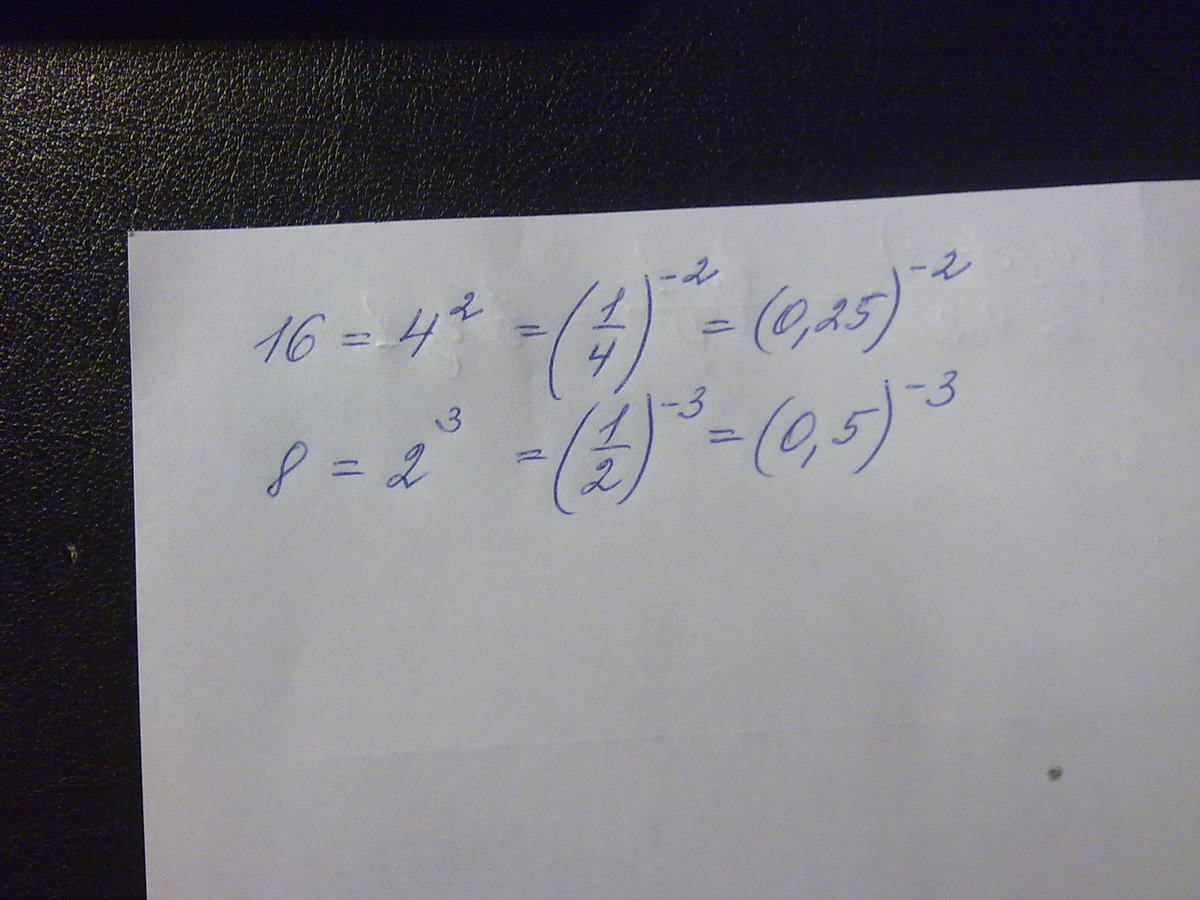 16 = 4² = (1/4)⁻² = (0,25)⁻²
8 = 2³ = (1/2)⁻³ = (0,5)⁻³